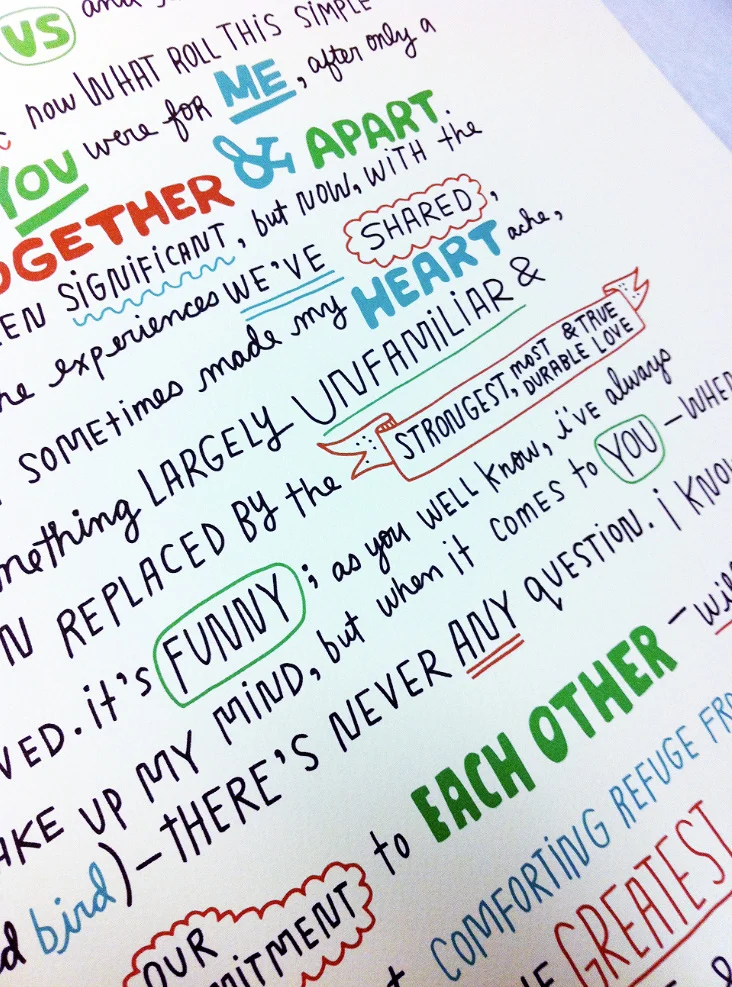 US and
now WHAT ROLL THIS SIMPLE
YOU were for ME, after only a
OGETHER & APART.
EEN SiGNiFiCANT, but NOW, WiTH the
he experiences WE'VE SHARED,
SOMETiMES made my HEART ache,
mething LARGELY UNFAMiLiAR &
N REPLACED BY the STRONGEST, MOST & TRUE DURABLE LOVE
VED. it's FUNNY; as you WELL know, i've always
AKE UP MY MiND, but when it COMES to YOU – WHEN
d bird) – THERE'S NEVER ANY QUESTiON. i KNOW
OUR MITMENT to EACH OTHER – will
COMFORTiNG REFUGE FRO
HE GREATEST